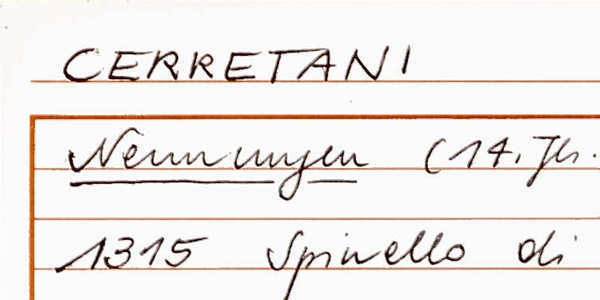 CERRETANI
Nennungen (14. Jh.
1315 Spinello di